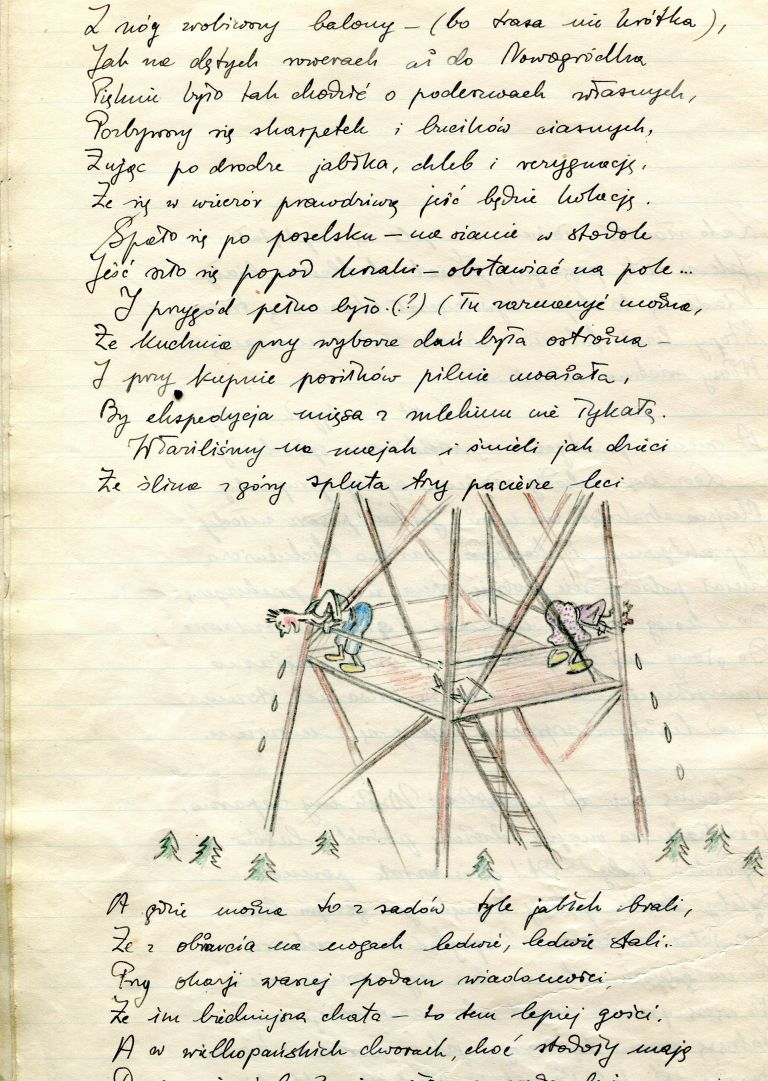 Z nóg zrobiwszy balony – (bo trasa nie krótka),
Jak na dętych rowerach aż do Nowogródka
Pięknie było tak chodzić o podeszwach własnych,
Pozbywszy się skarpetek i bucików ciasnych,
Żując po drodze jabłka, chleb i rezygnację,
Że się w wieczór prawdziwą jeść będzie kolację.
Spało się po poselsku – na sianie w stodole
Jeść szło się popod krzaki – obstawiać na pole...
I przygód pełno było. (?) (Tu zaznaczyć można,
Że kuchnia przy wyborze dań była ostrożna –
I przy kupnie posiłków pilnie uważała,
By ekspedycja mięsa z mlekiem nie tykała.
Właziliśmy na i śmieli jak dzieci
Że ślina z góry spluta trzy pacierze leci
A gdzie można to z sadów tyle jabłek brali,
Że z obżarcia na nogach ledwie, ledwie stali.
Przy okazji waszej podam wiadomości,
Że im biedniejsza chata – to tem lepiej gości.
A w wielkopańskich dworach, choć stodoły mają